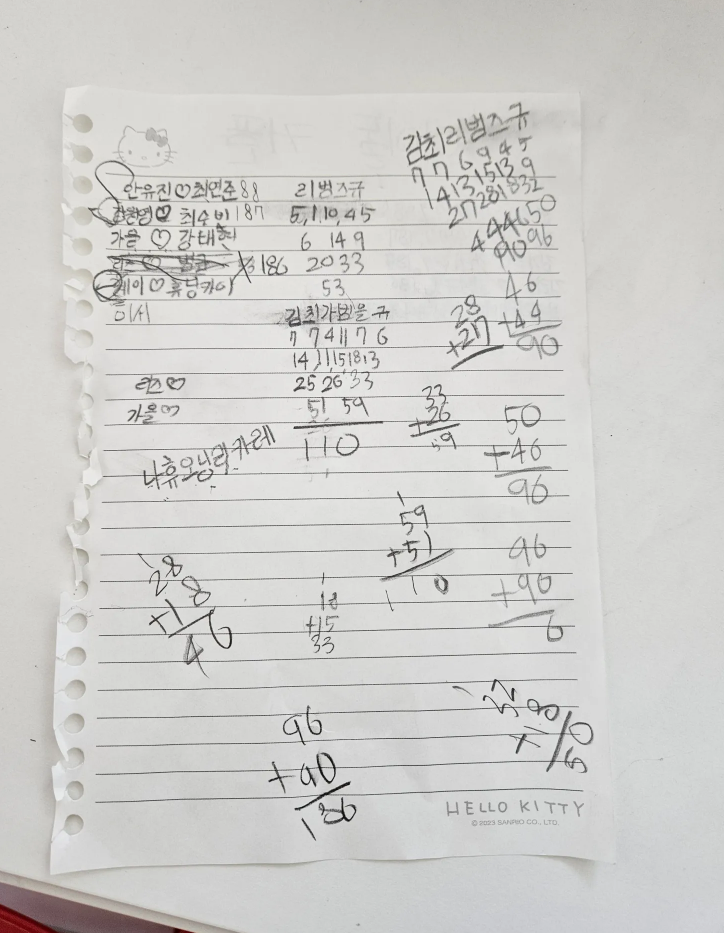 김최리범즈규
7 7 6 9 4 5
14 13 15 13 9
27 28 18 32
44 46 50
90 96
안유진♡최연준 88
최수빈 187
가을 ♡ 강태현
186
레이♡휴닝카이
이서
리즈♡
가을♡
리범즈규
5,1,10,45
6 14 9
20 33
53
김최가범을규
7 7 4 11 7 6
14 11 15 18 13
25 26 33
51 59
110
46
+44
90
28
+217
33
+26
59
50
+46
96
나휴오닝리카레
59
+51
110
96
+90
6
28
+18
46
18
+15
33
32
+18
50
96
+90
186
HELLO KITTY
© 2023 SANRIO CO., LTD.